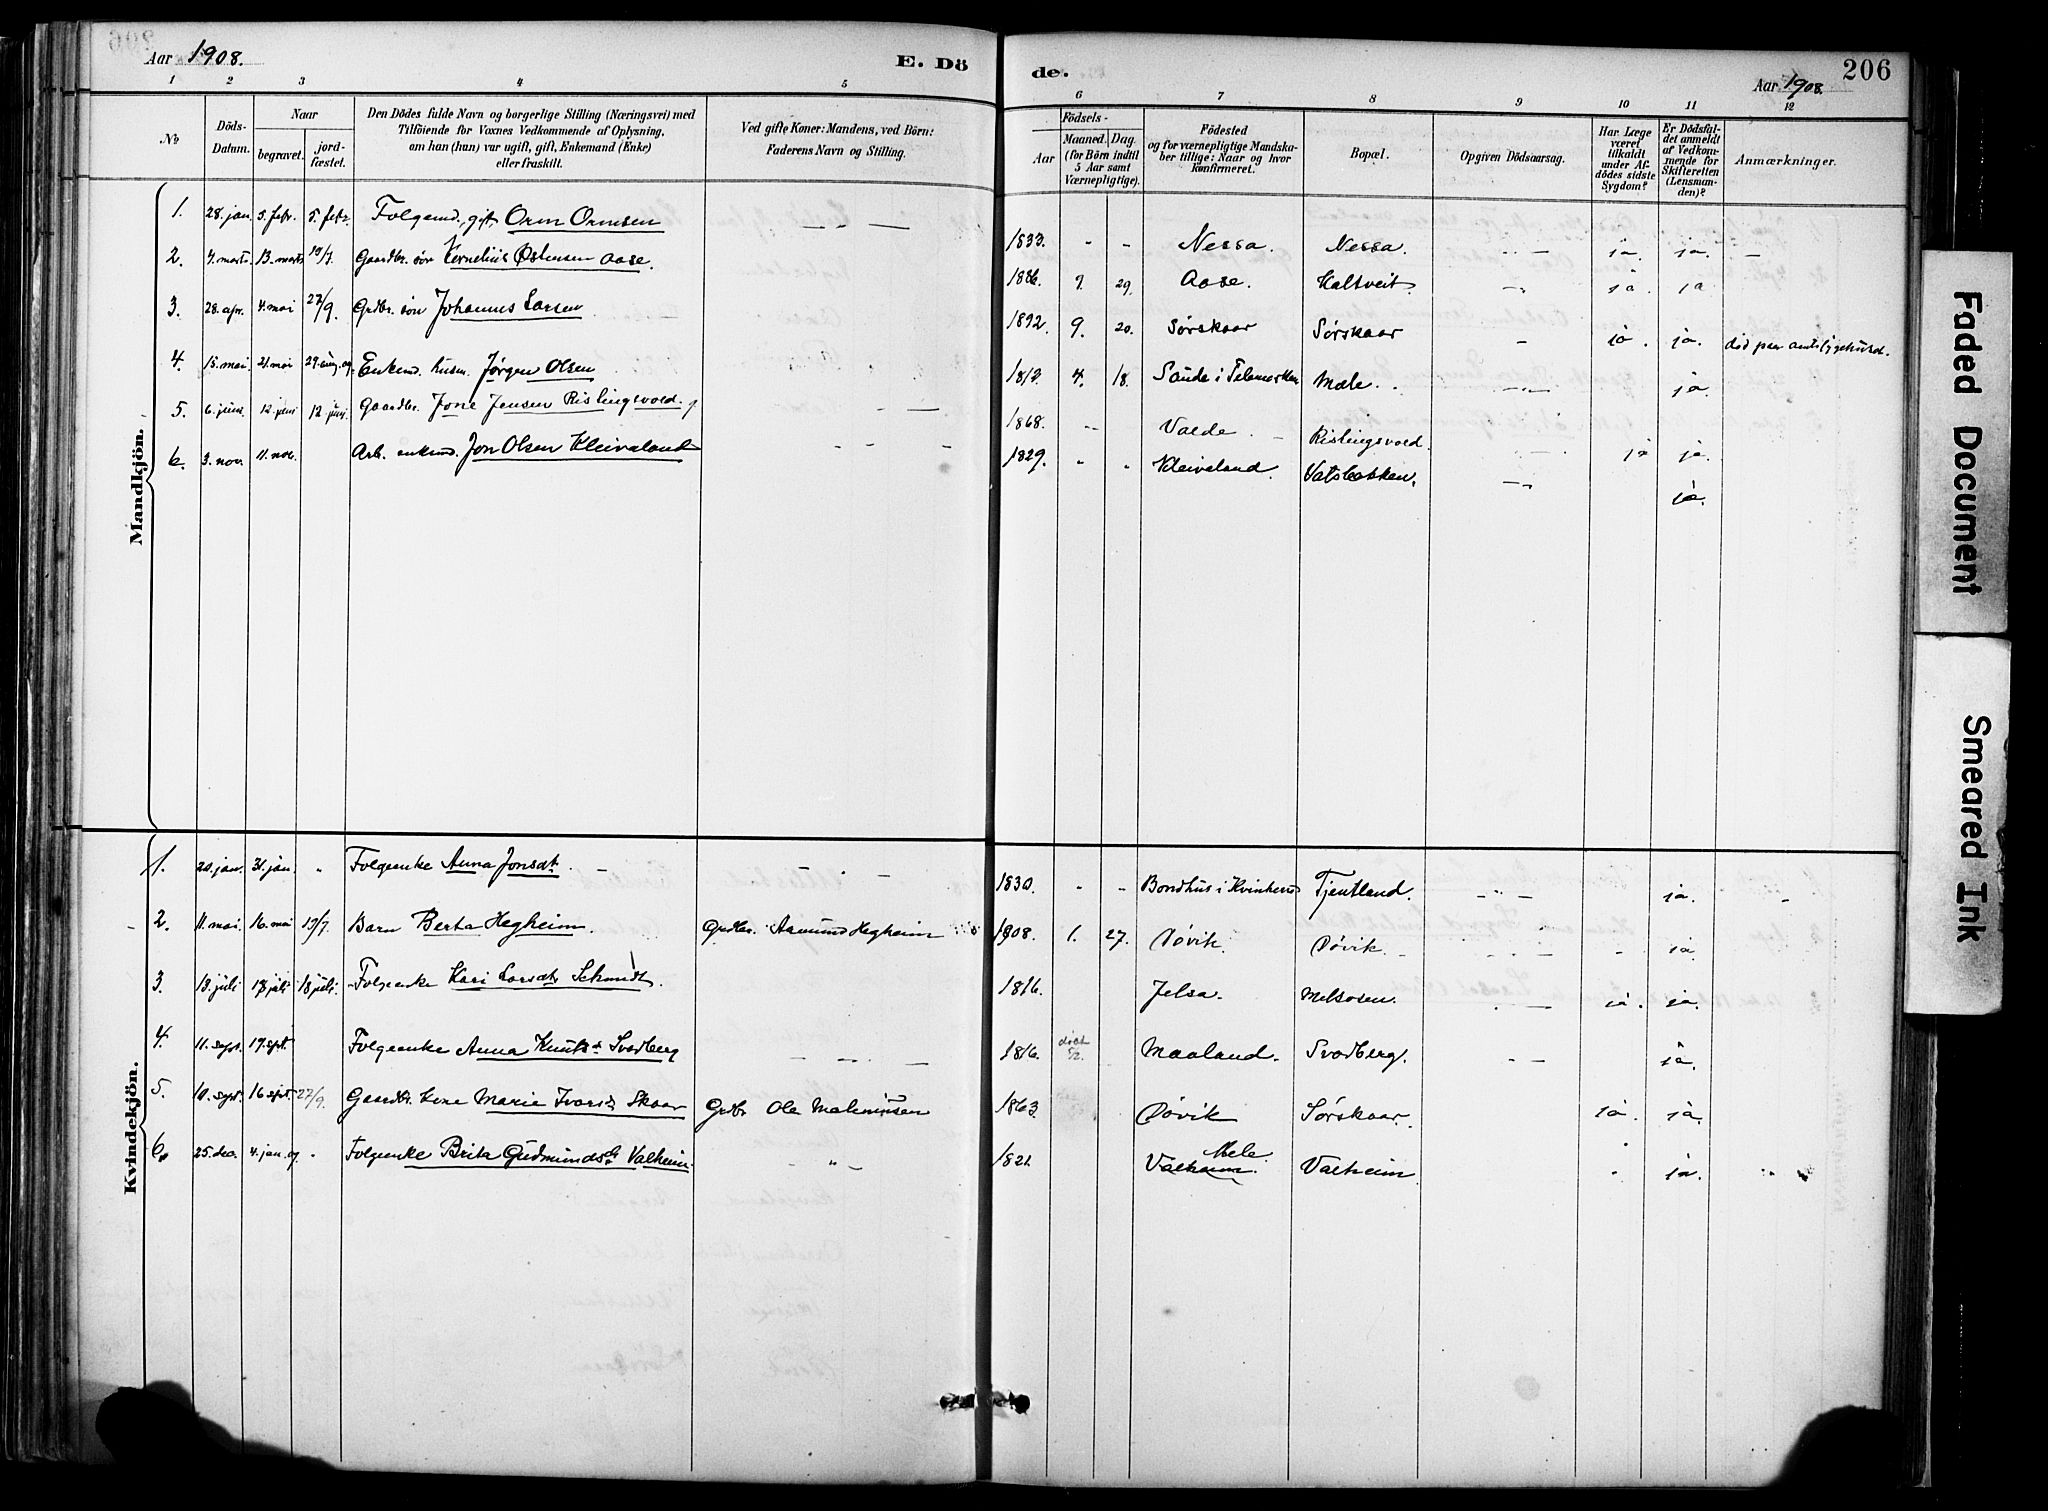 Aar 1908. E. Dö de. Aar 1908. 206
1 2 3 4 5 6 7 8 9 10 11 12
No
Döds-Datum.
Naar
begravet.
jordfæstet.
Den Dödes fulde Navn og borgerlige Stilling (Næringsvei) med
Tilföiende for Voxnes Vedkommende af Oplysning,
om han (hun) var ugift, gift, Enkemand (Enke)
eller fraskilt.
Ved gifte Koner: Mandens, ved Börn:
Faderens Navn og Stilling.
Födsels-
Aar
Maaned. Dag.
(for Börn indtil
5 Aar samt
Værnepligtige).
Födested
og for værnepligtige Mandska-
ber tillige: Naar og hvor
konfirmeret.
Bopæl.
Opgiven Dödsaarsag.
Har Læge
været
tilkaldt
under Af-
dödes sidste
Sygdom?
Er Dödsfal-
det anmeldt
af Vedkom-
mende for
Skifteretten
(Lensman-
den)?
Anmærkninger.
Mandkjön.
1. 28. jan. 5. febr. 5. febr. Folgemd., gift, Orm Ormsen 1833. Nessa. Nessa. ja. ja.
2. 7. marts 13. marts 19/7. Gaardbr. søn Kornelius Østensen Aase. 1886. 9. 29. Aase. Kaltveit. ja. ja
3. 28. apr. 4. mai 27/9. Grdbr. søn Johannes Larsen 1892. 9. 20. Sørskaar Sørskaar ja. ja. død paa amtssygehuset.
4. 15. mai 21. mai Enkemd. husm. Jørgen Olsen 4. 18. Saude i Telemarken Mæle. ja
5. 6. juni 12. juni 12. juni. Gaardbr. Jone Jensen Rislingsvold. 1868. Valde Rislingsvold. ja ja.
6. 3. nov. 11. nov. Arb. enkemd. Jon Olsen Kleivaland 1829. Kleivaland. Vatsbakken. ja.
Kvindekjön.
1. 20. jan. 31. jan. Folgeenke Anna Jonsdt. 1830. Bondhus i Kvinherred Tjentland. ja.
2. 11. mai. 16. mai 19/7. Barn Berta Hegheim. Grdbr. Aamund Hegheim 1908. 1. 27. Døvik. Døvik. ja.
3. 13. juli 17. juli 18. juli. Folgeenke Kari Larsdt. Schmidt. 1816. Jelsa. Melsosen. ja. ja.
4. 11. sept. 17. sept. Folgeenke Anna Knutsdt Svadberg 1816. døbt 5/2. Maaland. Svadberg. ja.
5. 10. sept. 16 sept. 27/9. Gaardbr. kone Marie Ivarsdt Skaar Grdbr Ole Malminsen 1863. Døvik Sørskaar. ja. ja.
6. 25. dec. 4. jan. Folgeenke Brita Gudmundsdt Valheim. 1821. Mele Valheim. Valheim ja.
Faded Document
Smeared Ink